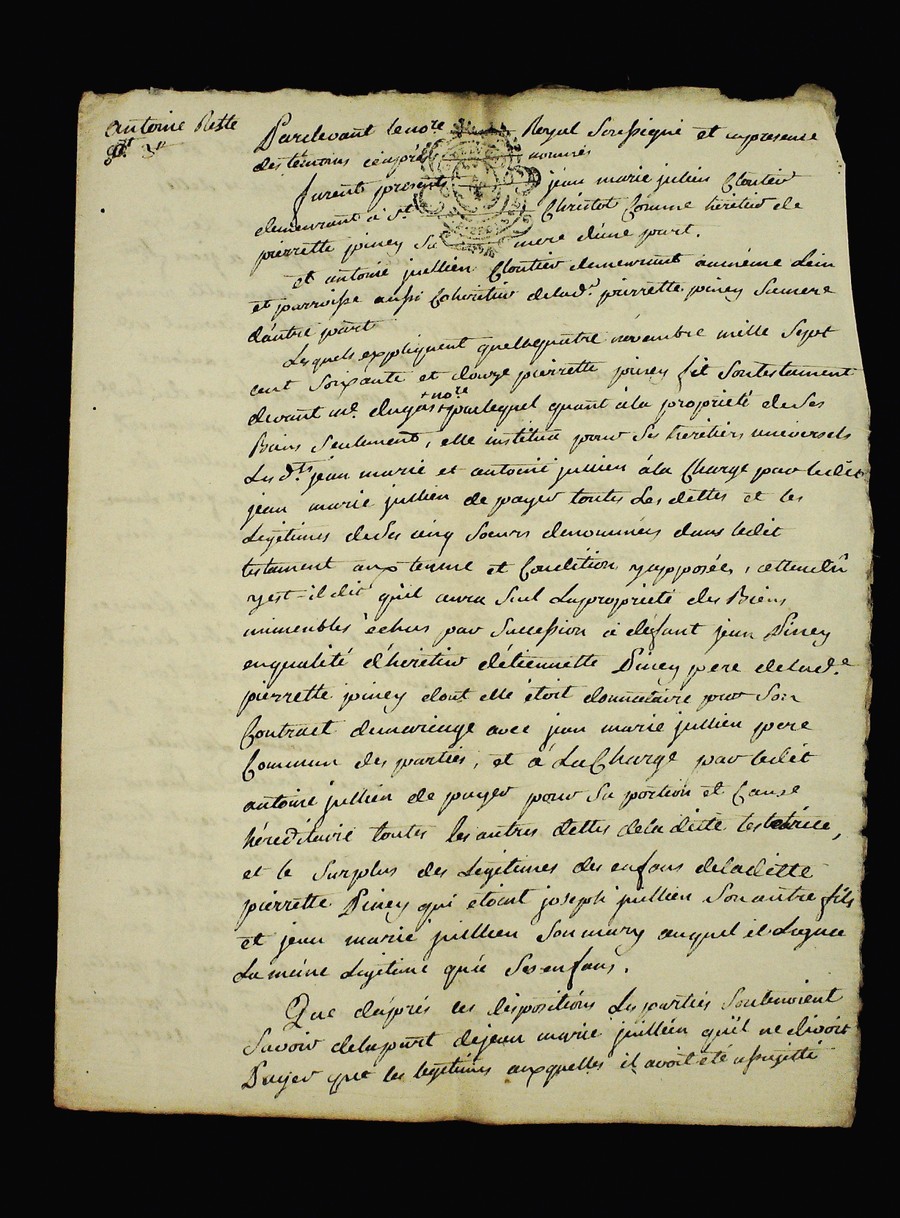 antoine Reste
Pardevant le no.re Royal Soussigné et enpresence
des témoins ciaprés nommés
furent presents jean marie jullien Cloutier
demeurant a S.t Christot Comme héritier de
pierrette piney Sa mere d'une part.
et antoine jullien Cloutier demeurant aumême Lieu
et parroisse aussi Cohéritier delad.e pierrette piney Samere
d'autre part
Lesquels expliquent quelequatre novembre mille Sept
cent Soixante et douze pierrette piney fit Sontestament
devant m.e dugas + no.re + parlequel quant àla propriété deSes
Biens Seulement, elle institua pour Ses héritiers universels
Lesd.ts jean marie et antoine jullien àla Charge par ledit
jean marie jullien de payer toutes Les dettes et les
Légitimes deSes cinq Soeurs denommées dans ledit
testament aux terme et Condition yapposées, attendû
yest-il dit qu'il aura Seul Lapropriété des Biens
immeubles échus par Succession à défaut jean Piney
enqualité d'héritier d'étiennette Piney pere delad.e
pierrette piney dont elle étoit donnataire par Son
Contract demariage avec jean marie jullien pere
Commun des parties, et à LaCharge par ledit
antoine jullien de payer pour Sa portion et Cause
héréditaire toutes les autres dettes deladitte testatrice,
et le Surplus des Légitimes des enfans deladitte
pierrette Piney qui étoint joseph jullien Son autre fils
et jean marie jullien Son mary auquel il Legue
La même Légitime qu'à Ses enfans.
Que d'après ces dispositions Les parties Soutenoient
Savoir delapart dejean marie jullien qu'il ne devoit
Payer que les legitimes auxquelles il avoit été assujetti